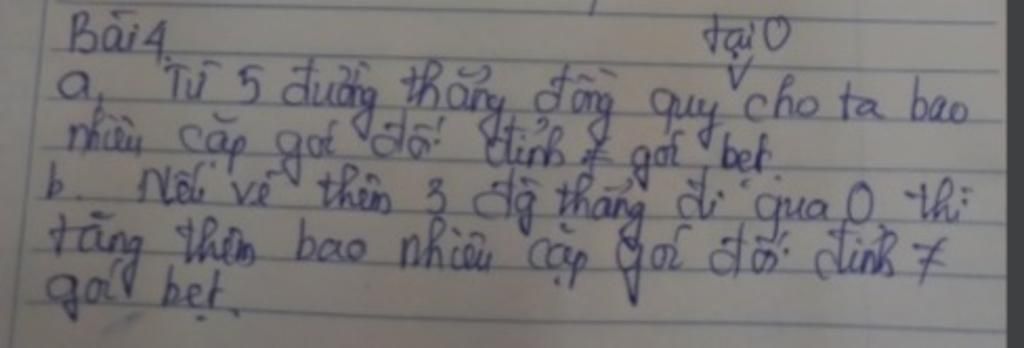 Bài 4.
a, Từ 5 đường thẳng đồng quy tại O cho ta bao
nhiêu cặp góc đối đỉnh ≠ góc bẹt.
b. Nếu vẽ thêm 3 đg thẳng đi qua O thì
tăng thêm bao nhiêu cặp góc đối đỉnh ≠
góc bẹt.